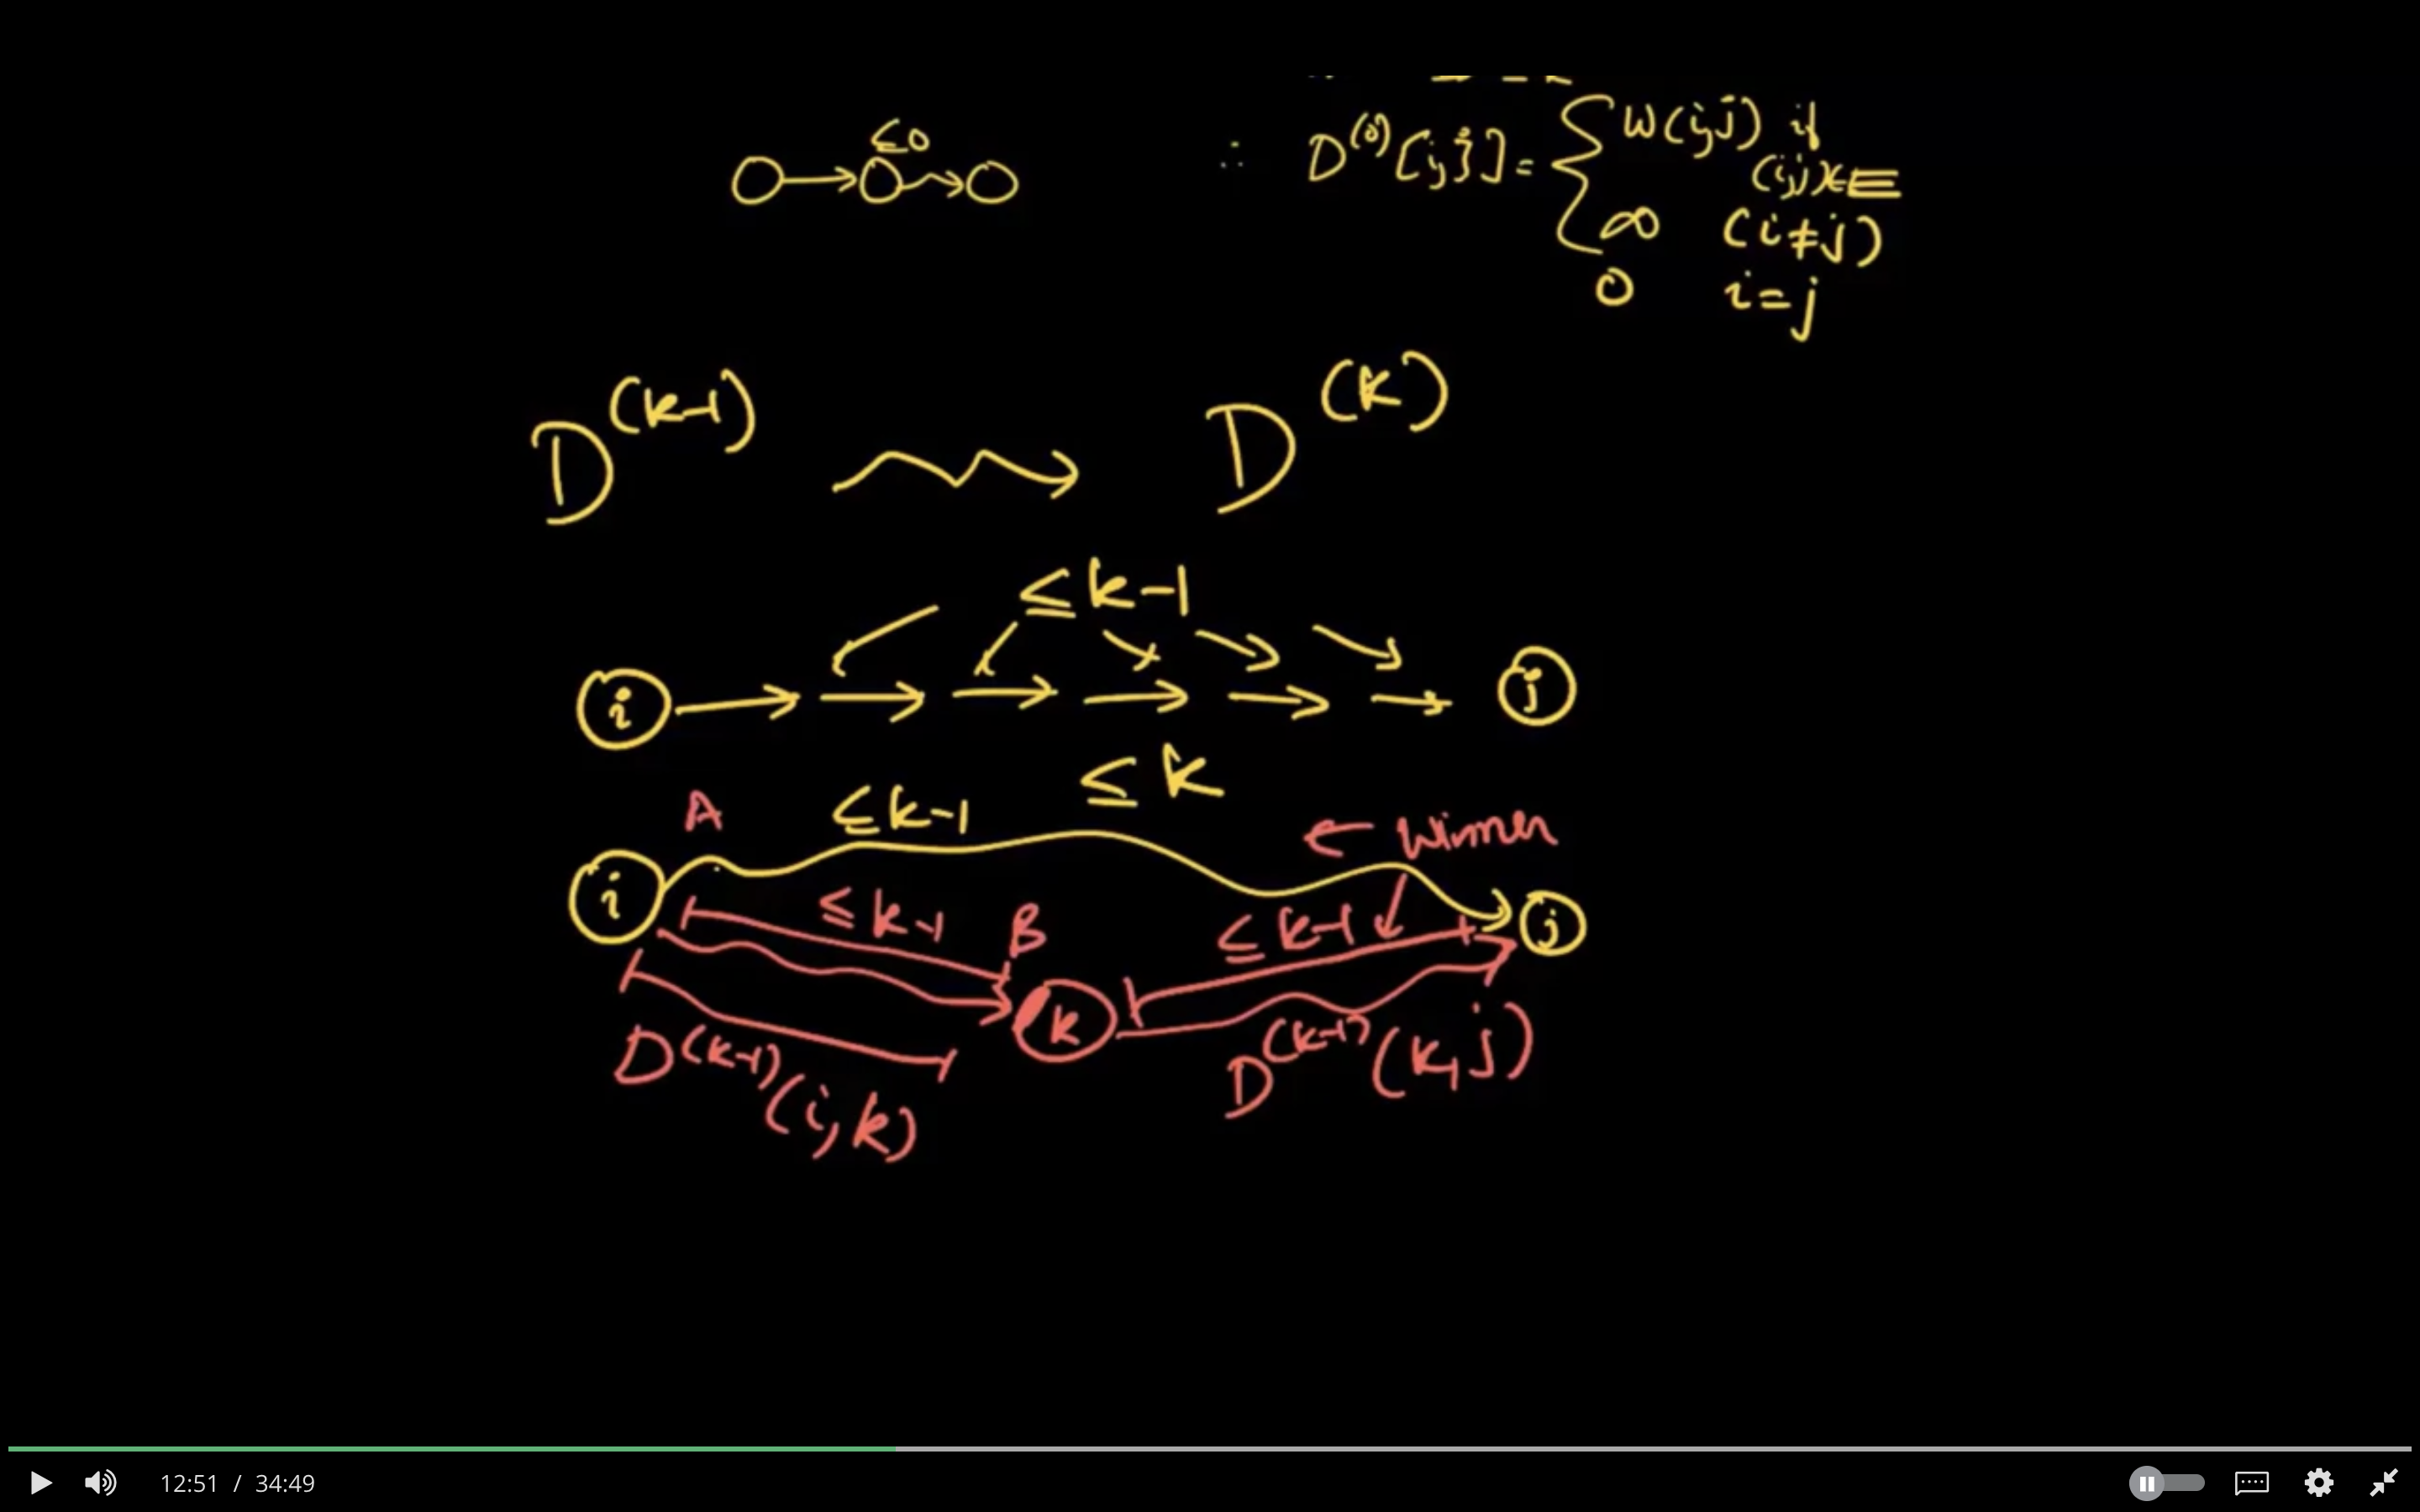 ≤0
∴ D^(0)[i,j] = { W(i,j) if
(i,j)∈E
∞ (i≠j)
0 i=j
D^(k-1) D^(k)
≤k-1
i j
≤k
A ≤k-1
← Winner
i j
≤k-1 B ≤k-1
k
D^(k-1)(i,k) D^(k-1)(k,j)
12:51 / 34:49